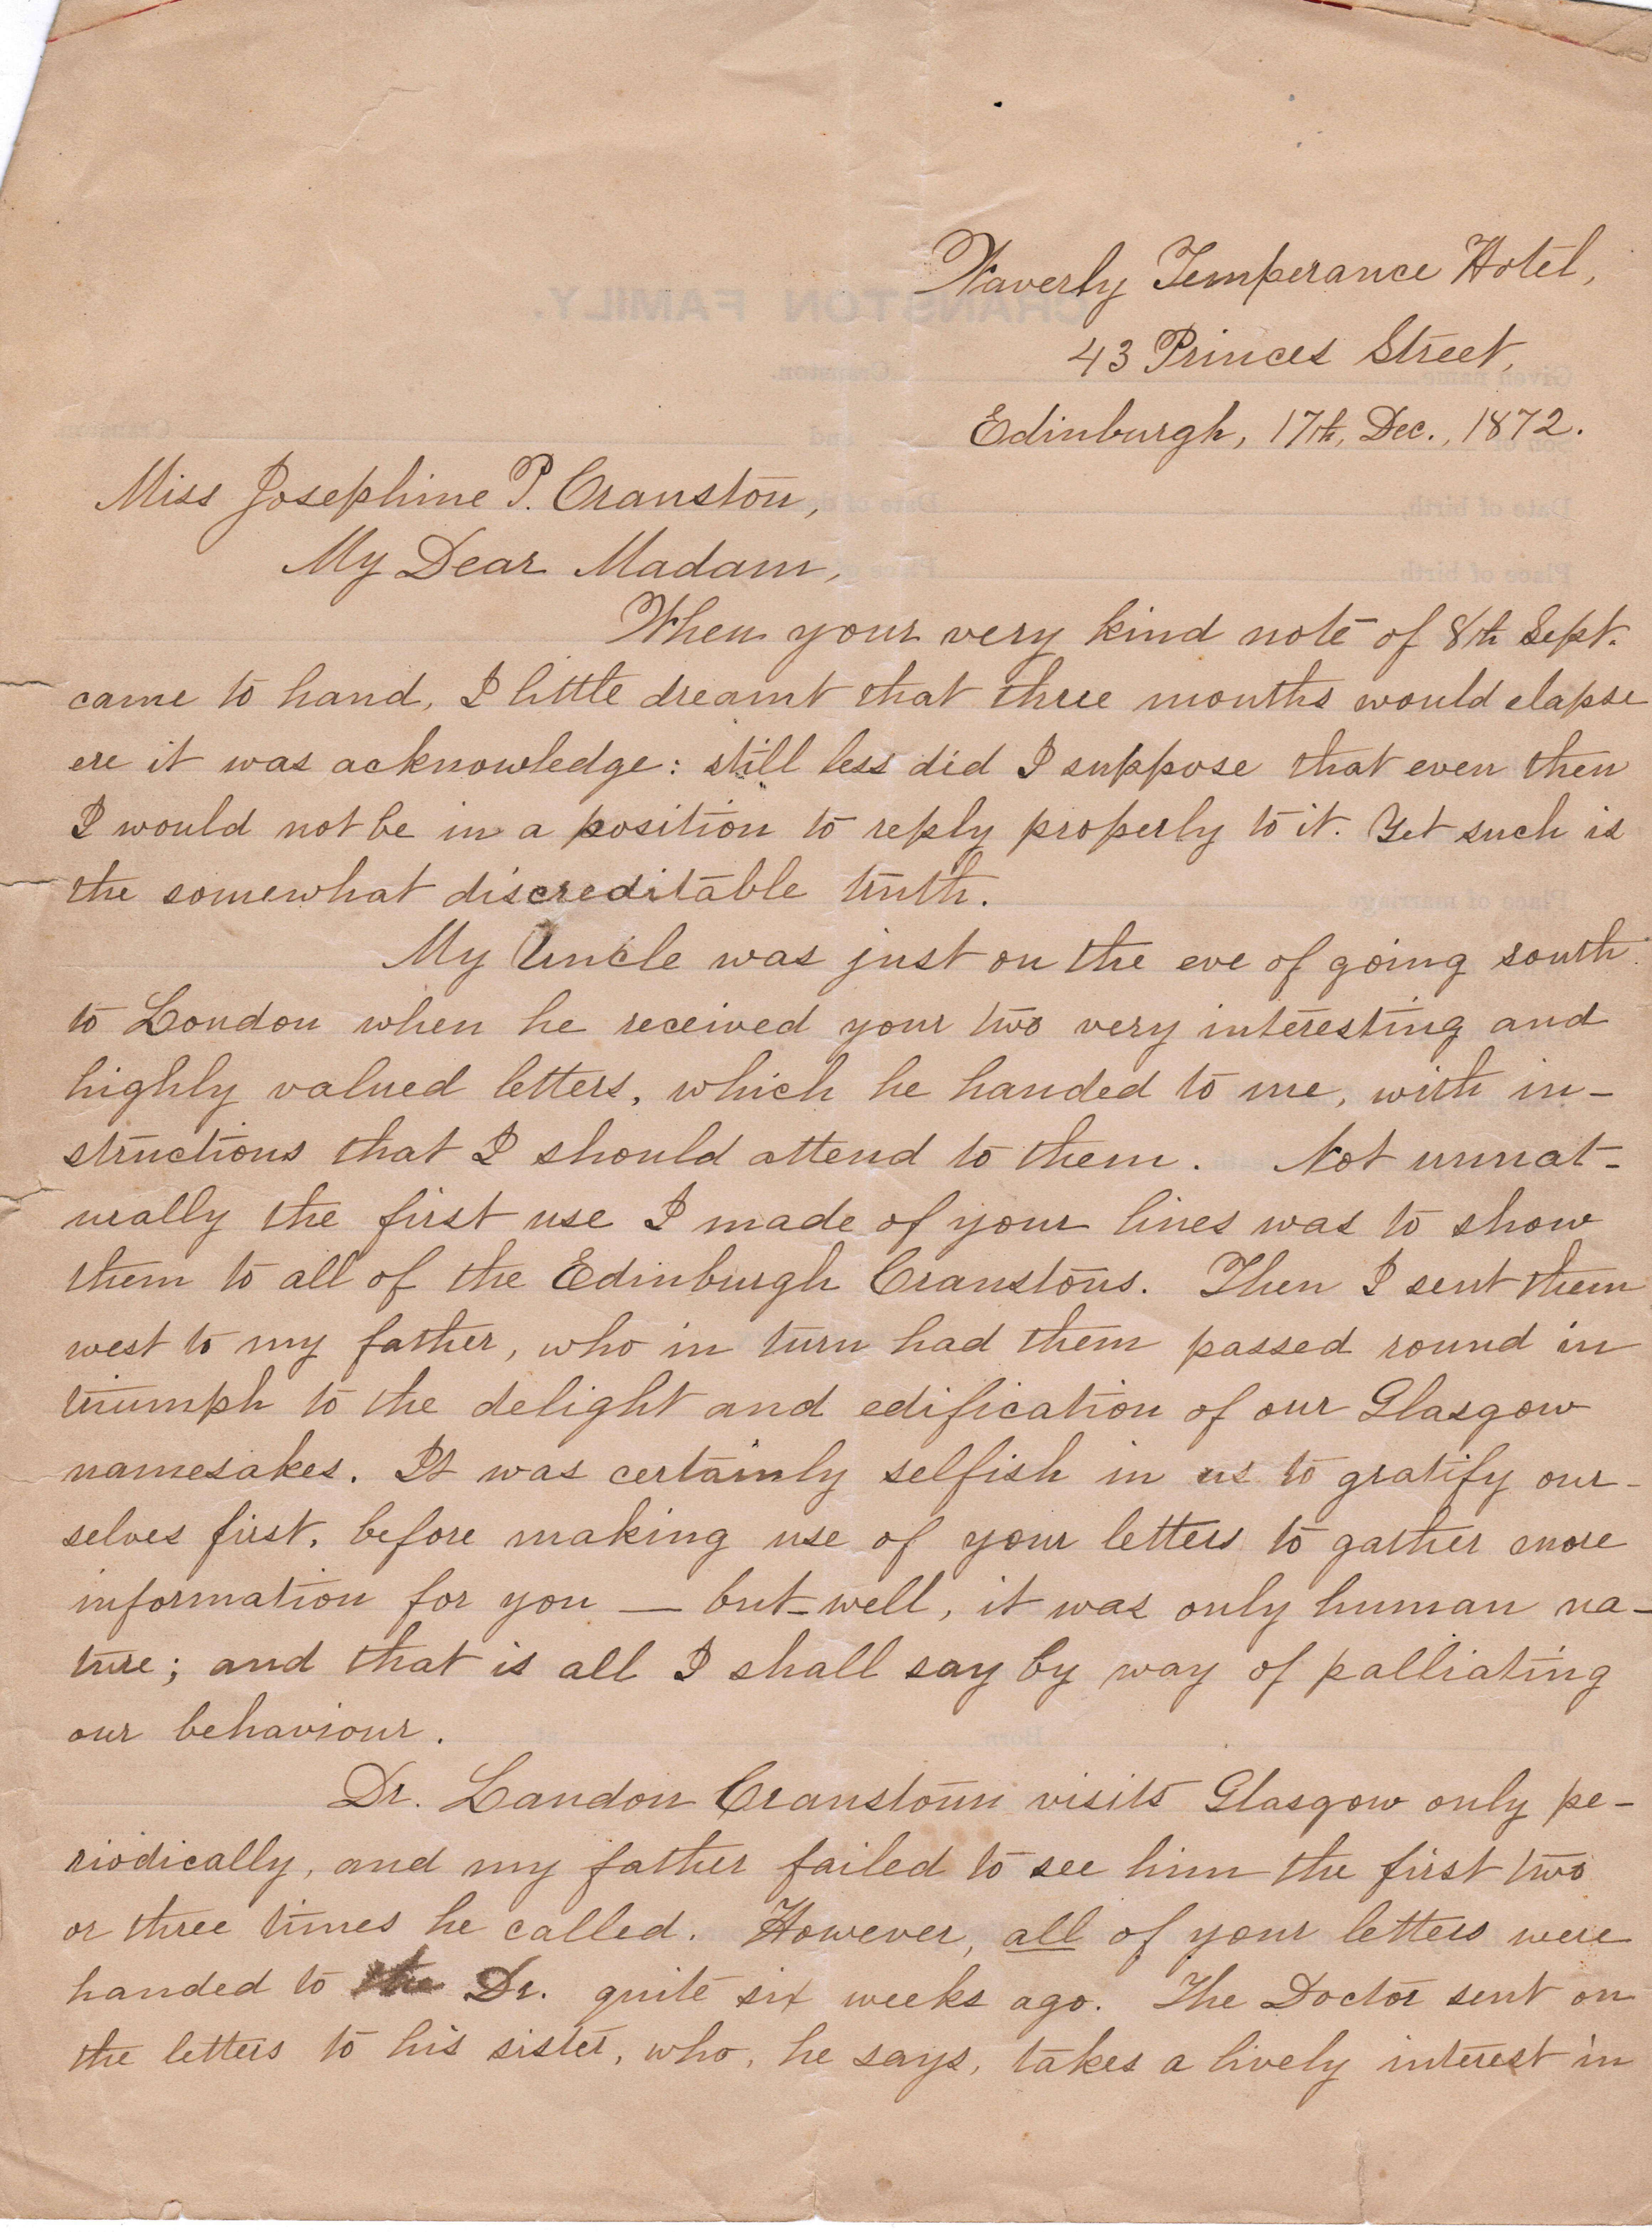 Waverly Temperance Hotel,
43 Princes Street,
Edinburgh, 17th, Dec., 1872.
Miss Josephine P. Cranston,
My Dear Madam,
When your very kind note of 8th Sept.
came to hand, I little dreamt that three months would elapse
ere it was acknowledge: still less did I suppose that even then
I would not be in a position to reply properly to it. Yet such is
the somewhat discreditable truth.
My Uncle was just on the eve of going south
to London when he received your two very interesting and
highly valued letters, which he handed to me, with in-
structions that I should attend to them. Not unnat-
urally the first use I made of your lines was to show
them to all of the Edinburgh Cranstons. Then I sent them
west to my father, who in turn had them passed round in
triumph to the delight and edification of our Glasgow
namesakes. It was certainly selfish in us to gratify our-
selves first, before making use of your letters to gather more
information for you — but-well, it was only human na-
ture; and that is all I shall say by way of palliating
our behaviour.
Dr. Landon Cranstoun visits Glasgow only pe-
riodically, and my father failed to see him the first two
or three times he called. However, all of your letters were
handed to the Dr. quite six weeks ago. The Doctor sent on
the letters to his sister, who, he says, takes a lively interest in
CRANSTON FAMILY.
Given name Cranston.
and Cranston.
Date of birth,
Place of birth
Place of marriage
Born